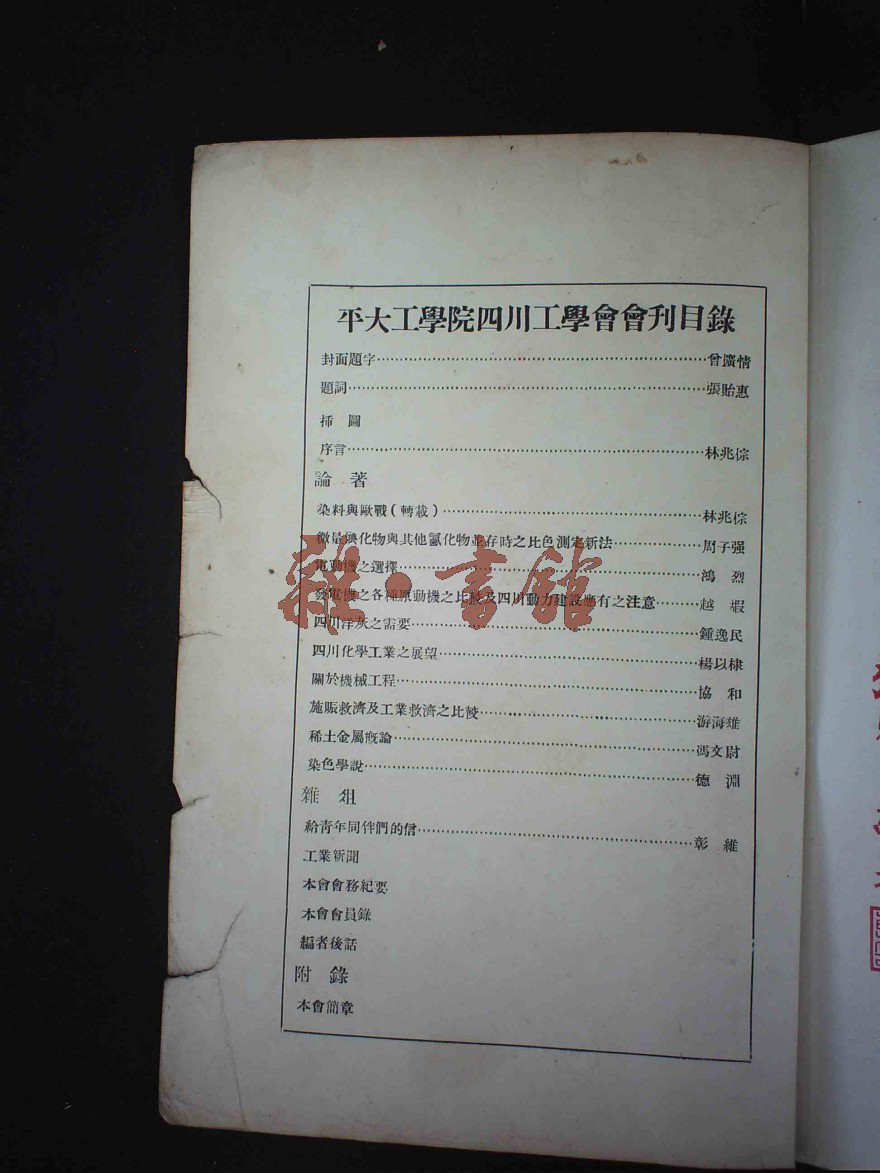 平大工學院四川工學會會刊目錄
封面題字……曾廣情
題詞……張貽惠
揷圖
序言……林兆倧
論著
染料與歐戰(轉載)……林兆倧
微量碘化物與其他氯化物並存時之比色測定新法……周子强
電動機之選擇……鴻烈
發電機之各種原動機之比較及四川動力建設應有之注意……越嘏
四川洋灰之需要……鍾逸民
四川化學工業之展望……楊以棣
關於機械工程……協和
施賑救濟及工業救濟之比較……游海雄
稀土金屬槪論……馮文尉
染色學說……德淵
雜俎
給靑年同伴們的信……彰維
工業新聞
本會會務紀要
本會會員錄
編者後話
附錄
本會簡章
雜·書館